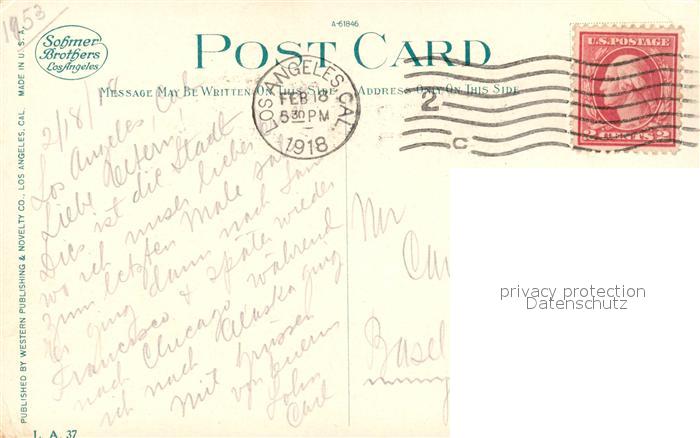 1953
A-61846
Sohmer
Brothers
Los Angeles
POST CARD
MESSAGE MAY BE WRITTEN ON THIS SIDE
ADDRESS ONLY ON THIS SIDE
LOS ANGELES, CAL.
FEB 18
5 30 PM
1918
2
C
U.S. POSTAGE
2 CENTS 2
PUBLISHED BY WESTERN PUBLISHING & NOVELTY CO., LOS ANGELES, CAL. MADE IN U. S. A.
2/18/18
Los Angeles Cal
Liebe Eltern.
Dies ist die Stadt
wo ich unser lieber
zum letzten Male sah
Er ging dann nach San
Francisco & später wieder
nach Chicago während
ich nach Alaska ging
Mit Grüssen
von Euerm
Sohn
Carl
Mr
Car
Basel
L. A. 37
privacy protection
Datenschutz